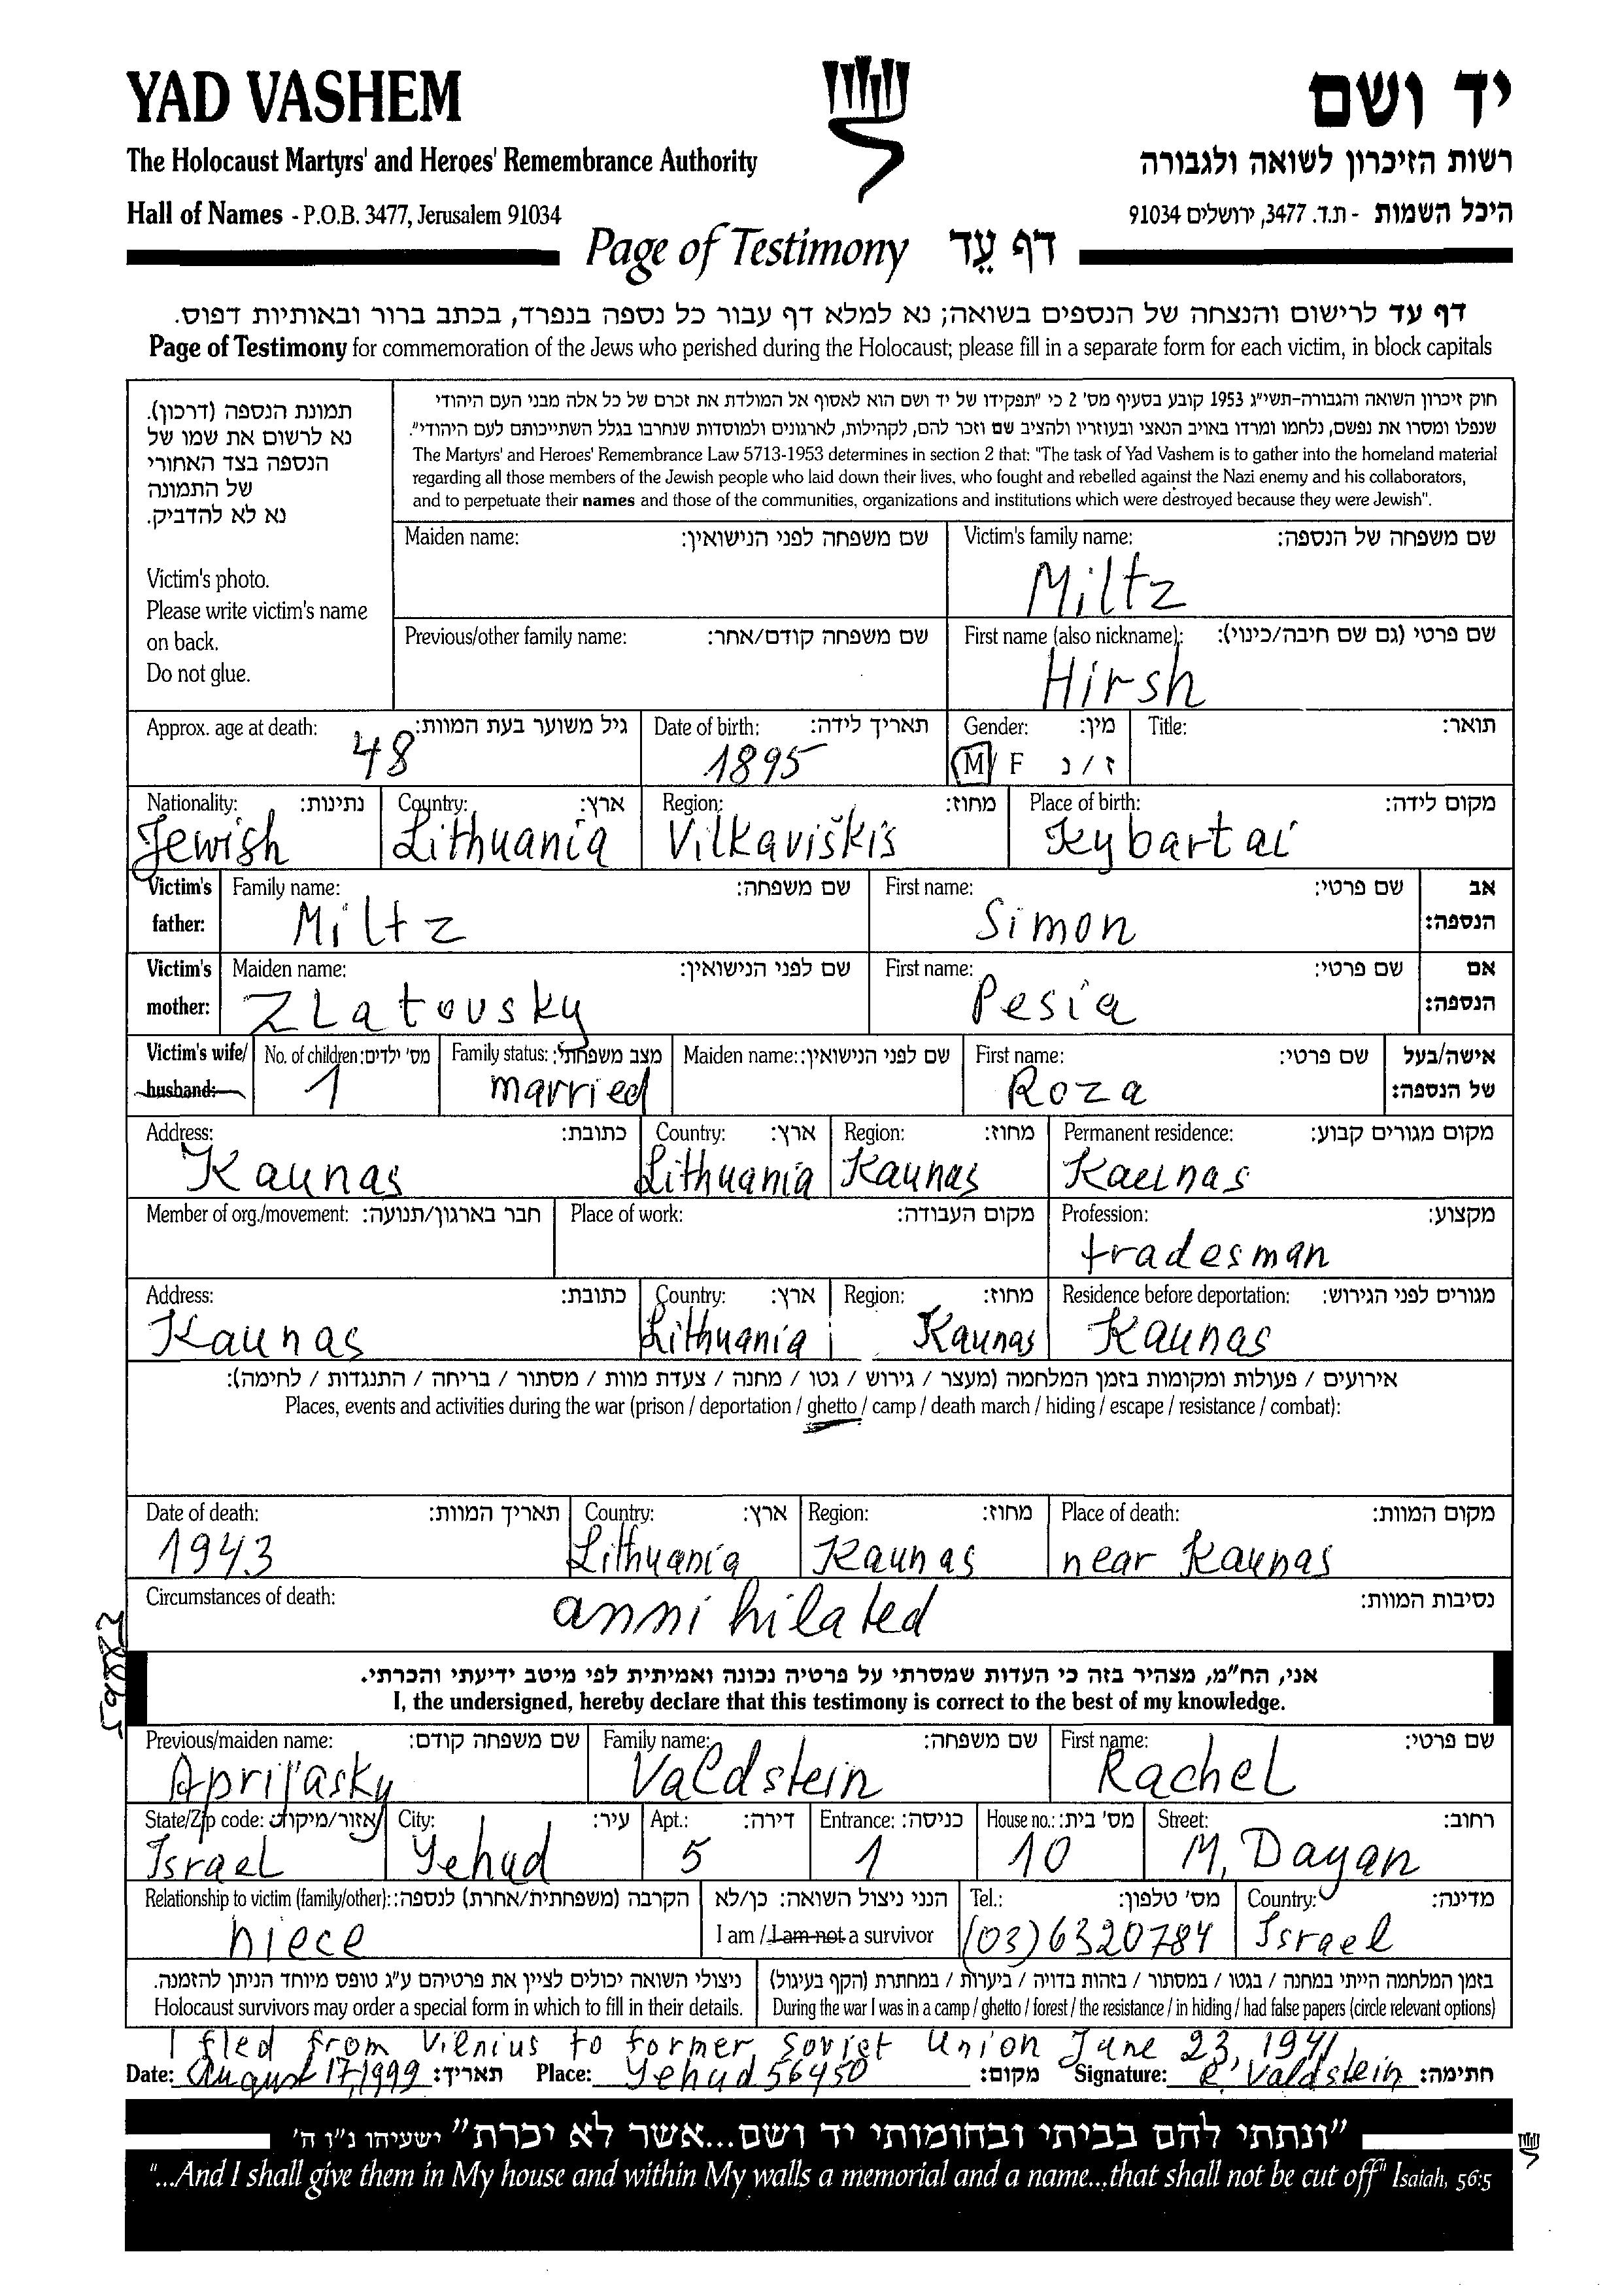 YAD VASHEM
יד ושם
The Holocaust Martyrs' and Heroes' Remembrance Authority
רשות הזיכרון לשואה ולגבורה
Hall of Names - P.O.B. 3477, Jerusalem 91034
היכל השמות - ת.ד. 3477, ירושלים 91034
Page of Testimony דף עֵד
דף עד לרישום והנצחה של הנספים בשואה; נא למלא דף עבור כל נספה בנפרד, בכתב ברור ובאותיות דפוס.
Page of Testimony for commemoration of the Jews who perished during the Holocaust; please fill in a separate form for each victim, in block capitals
תמונת הנספה (דרכון).
נא לרשום את שמו של
הנספה בצד האחורי
של התמונה
נא לא להדביק.
Victim's photo.
Please write victim's name
on back.
Do not glue.
חוק זיכרון השואה והגבורה-תשי"ג 1953 קובע בסעיף מס' 2 כי "תפקידו של יד ושם הוא לאסוף אל המולדת את זכרם של כל אלה מבני העם היהודי
שנפלו ומסרו את נפשם, נלחמו ומרדו באויב הנאצי ובעוזריו ולהציב שם וזכר להם, לקהילות, לארגונים ולמוסדות שנחרבו בגלל השתייכותם לעם היהודי".
The Martyrs' and Heroes' Remembrance Law 5713-1953 determines in section 2 that: "The task of Yad Vashem is to gather into the homeland material
regarding all those members of the Jewish people who laid down their lives, who fought and rebelled against the Nazi enemy and his collaborators,
and to perpetuate their names and those of the communities, organizations and institutions which were destroyed because they were Jewish".
Maiden name: שם משפחה לפני הנישואין: Victim's family name: שם משפחה של הנספה:
Miltz
Previous/other family name: שם משפחה קודם/אחר: First name (also nickname): שם פרטי (גם שם חיבה/כינוי):
Hirsh
Approx. age at death: גיל משוער בעת המוות: Date of birth: תאריך לידה: Gender: מין: Title: תואר:
48 1895 M/ F ז / נ
Nationality: נתינות: Country: ארץ: Region: מחוז: Place of birth: מקום לידה:
Jewish Lithuania Vilkaviškis Kybartai
Victim's father: Family name: שם משפחה: First name: שם פרטי: אב הנספה:
Miltz Simon
Victim's mother: Maiden name: שם לפני הנישואין: First name: שם פרטי: אם הנספה:
Zlatovsky Pesia
Victim's wife/ husband: No. of children: מס' ילדים: Family status: מצב משפחתי: Maiden name: שם לפני הנישואין: First name: שם פרטי: אישה/בעל של הנספה:
1 married Roza
Address: כתובת: Country: ארץ: Region: מחוז: Permanent residence: מקום מגורים קבוע:
Kaunas Lithuania Kaunas Kaunas
Member of org./movement: חבר בארגון/תנועה: Place of work: מקום העבודה: Profession: מקצוע:
tradesman
Address: כתובת: Country: ארץ: Region: מחוז: Residence before deportation: מגורים לפני הגירוש:
Kaunas Lithuania Kaunas Kaunas
אירועים / פעולות ומקומות בזמן המלחמה (מעצר / גירוש / גטו / מחנה / צעדת מוות / מסתור / בריחה / התנגדות / לחימה):
Places, events and activities during the war (prison / deportation / ghetto / camp / death march / hiding / escape / resistance / combat):
Date of death: תאריך המוות: Country: ארץ: Region: מחוז: Place of death: מקום המוות:
1943 Lithuania Kaunas near Kaunas
Circumstances of death: נסיבות המוות:
annihilated
אני, הח"מ, מצהיר בזה כי העדות שמסרתי על פרטיה נכונה ואמיתית לפי מיטב ידיעתי והכרתי.
I, the undersigned, hereby declare that this testimony is correct to the best of my knowledge.
Previous/maiden name: שם משפחה קודם: Family name: שם משפחה: First name: שם פרטי:
Aprijasky Valdstein Rachel
State/Zip code: אזור/מיקוד: City: עיר: Apt.: דירה: Entrance: כניסה: House no.: מס' בית: Street: רחוב:
Israel Yehud 5 1 10 M. Dayan
Relationship to victim (family/other): הקרבה (משפחתית/אחרת) לנספה: הנני ניצול השואה: כן/לא Tel.: מס' טלפון: Country: מדינה:
niece I am / I am not a survivor (03) 6320784 Israel
ניצולי השואה יכולים לציין את פרטיהם ע"ג טופס מיוחד הניתן להזמנה. בזמן המלחמה הייתי במחנה / בגטו / במסתור / בזהות בדויה / ביערות / במחתרת (הקף בעיגול)
Holocaust survivors may order a special form in which to fill in their details. During the war I was in a camp / ghetto / forest / the resistance / in hiding / had false papers (circle relevant options)
I fled from Vilnius to former Soviet Union June 23, 1941
Date: August 17, 1999 תאריך: Place: Yehud 56450 מקום: Signature: R. Valdstein חתימה:
"ונתתי להם בביתי ובחומותי יד ושם...אשר לא יכרת" ישעיהו נ"ו ה'
"...And I shall give them in My house and within My walls a memorial and a name...that shall not be cut off" Isaiah, 56:5